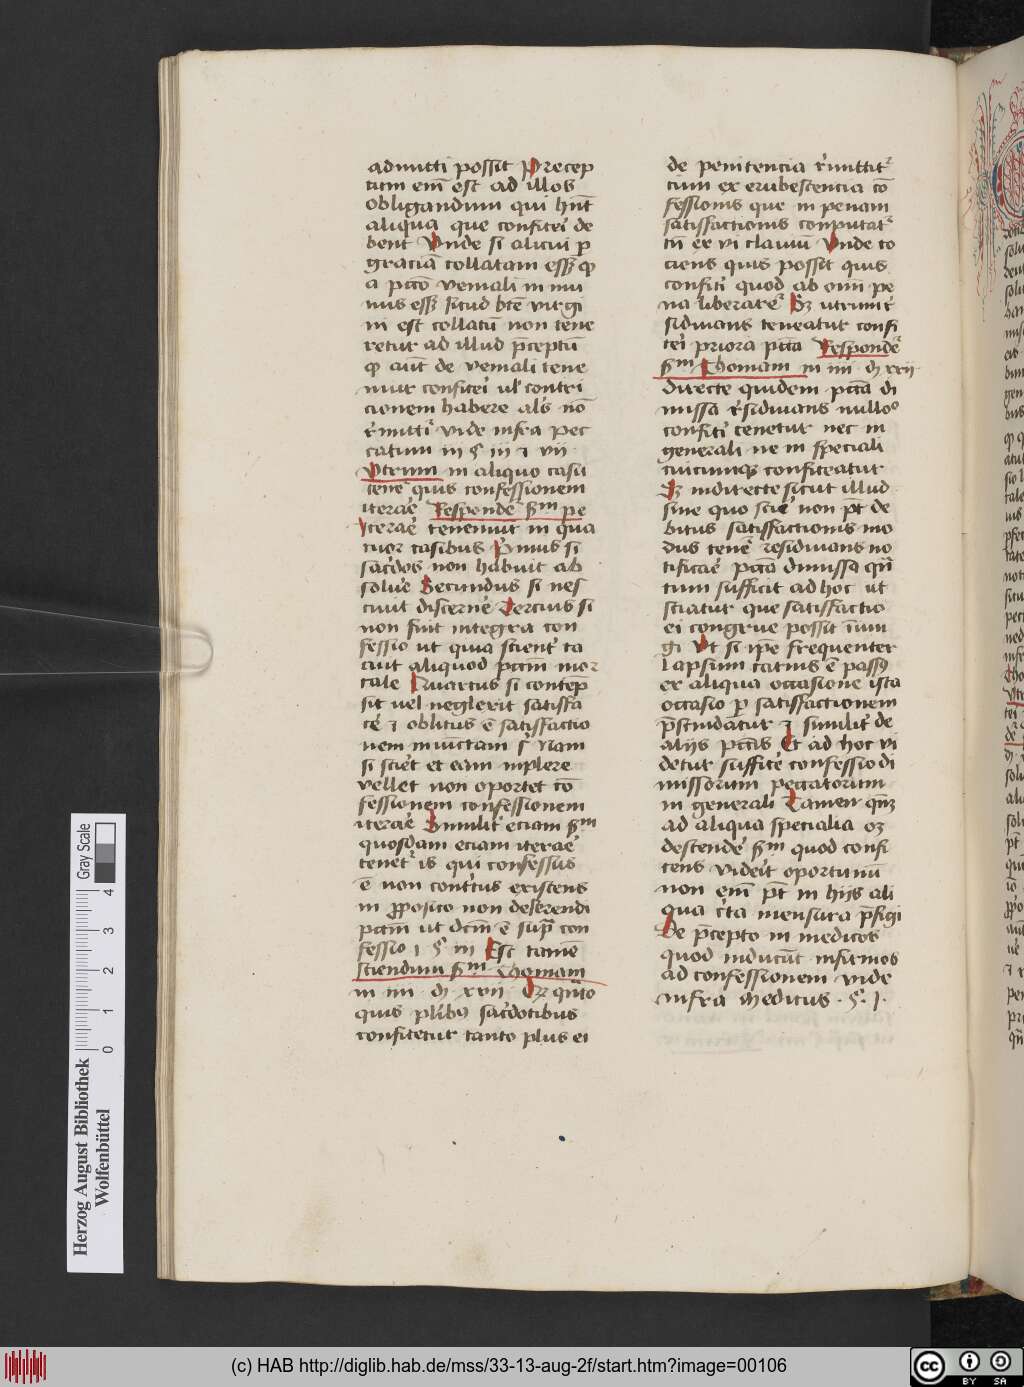 admitti possit Precep
tum em̅ est ad illos
obligandum qui hn̅t
aliqua que confiteri de
bent Vnde si alicui p
graciā collatam ess&
a pctō veniali in mu
nus esset sicud bt̅e virgi
ni est collatū non tene
retur ad illud p̅ceptū
aut̅ de veniali tene
mur confiteri ul' contri
cionem habere als nō
r̓mitti vide infra pec
catum iii § iii ⁊ vii
Vtrum in aliquo casu
tene quis confessionem
iterare Responde s̅m pe
iterare tenemur in qua
tuor casibus Primus si
sacdos non habuit ab
solue Secundus si nes
ciuit discerne Tercius si
non fuit integra con
fessio ut quia scient ta
cuit aliquod pctm̅ mor
tale Quartus si contep̅
sit uel neglexit satisfa
ce ⁊ oblitus ē satisfactio
nem iniunctam s Nam
si sciet et eam inplere
vellet non oportet cō
fessionem confessionem
iterare Similit eciam s̅m
quosdam eciam iterare
tenet is qui confessus
ē non contritus existens
in proposito non deserendi
pctm̅ ut dcm̅ ē supra con
fessio i § iii Est tamē
sciendum s̅m Thomam
in iiii di xvii quāto
quis plribus sacdotibus
confitetur tanto plus ei
de penitencia r̓mittit̓
tum ex erubescencia cō
fessionis que in penam
satisfactionis conputat̓
tū ex vi clauiū Vnde to
ciens quis possit quis
confiti quod ab omi pe
na liberaret̓ Sz utrum r̓
sidiuans teneatur confi
teri priora pctā Responde
s̅m Thomam in iiii di xxii
directe quidem pctā di
missa r̓sidiuans nullo
confiti tenetur nec in
generali ne in speciali
cuicumq confiteatur
Sz indirecte sicut illud
sine quo scie non pt̅ de
bitus satisfactionis mo
dus tene residiuans no
tificare pctā dimissa qn̅
tum sufficit ad hoc ut
sciatur que satisfactio
ei congrue possit iniun
gi Vt si ip̅e frequenter
lapsum carnis ē passus
ex aliqua occasione ista
occasio p satisfactionem
p̅scindatur ⁊ similit de
aliis pctis Et ad hoc vi
detur suffice confessio di
missorum peccatorum
in generali Tamen qn̅z
ad aliqua specialia oz
descende s̅m quod confi
tens videt oportunū
non em̅ pt̅ in hijs ali
qua cta mensura p̅figi
De p̅cepto in medicos
quod inducāt infirmos
ad confessionem vide
infra Medicus · § · i ·
Herzog August Bibliothek
Wolfenbüttel
Gray Scale
0 1 2 3 4
(c) HAB http://diglib.hab.de/mss/33-13-aug-2f/start.htm?image=00106
cc BY SA